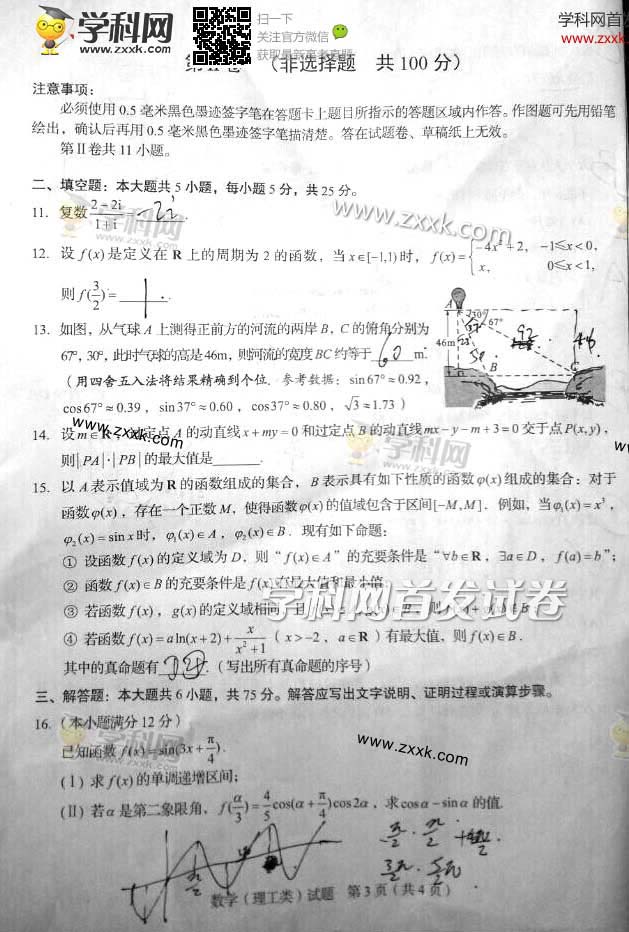 学科网
www.zxxk.com
扫一下
关注官方微信
获取最新高考真题
学科网首发
www.zxxk.
(非选择题 共100分)
注意事项:
必须使用0.5毫米黑色墨迹签字笔在答题卡上题目所指示的答题区域内作答。作图题可先用铅笔
绘出,确认后再用0.5毫米黑色墨迹签字笔描清楚。答在试题卷、草稿纸上无效。
第Ⅱ卷共11小题。
二、填空题:本大题共5小题,每小题5分,共25分。
11. 复数 (2-2i)/(1+i) = -2i.
12. 设f(x)是定义在R上的周期为2的函数,当x∈[-1,1)时,f(x)={-4x²+2, -1≤x<0, x, 0≤x<1,
则f(3/2)= 1 .
13. 如图,从气球A上测得正前方的河流的两岸B,C的俯角分别为
67°,30°,此时气球的高是46m,则河流的宽度BC约等于 60 m.
(用四舍五入法将结果精确到个位. 参考数据:sin67°≈0.92,
cos67°≈0.39,sin37°≈0.60,cos37°≈0.80,√3≈1.73)
A 30° 67°
46m
B C
92
www.zxxk.com
14. 设m∈R, 定点A的动直线x+my=0和过定点B的动直线mx-y-m+3=0交于点P(x,y),
则|PA|·|PB|的最大值是______.
www.zxxk.com
学科网
15. 以A表示值域为R的函数组成的集合,B表示具有如下性质的函数φ(x)组成的集合:对于
函数φ(x),存在一个正数M,使得函数φ(x)的值域包含于区间[-M,M]. 例如,当φ₁(x)=x³,
φ₂(x)=sinx时,φ₁(x)∈A,φ₂(x)∈B. 现有如下命题:
① 设函数f(x)的定义域为D,则“f(x)∈A”的充要条件是“∀b∈R,∃a∈D,f(a)=b”;
② 函数f(x)∈B的充要条件是f(x)有最大值和最小值
③ 若函数f(x),g(x)的定义域相同,且
学科网首发试卷
④ 若函数f(x)=aln(x+2)+x/(x²+1)(x>-2,a∈R)有最大值,则f(x)∈B.
其中的真命题有 .(写出所有真命题的序号)
三、解答题:本大题共6小题,共75分。解答应写出文字说明、证明过程或演算步骤。
16.(本小题满分12分)
已知函数f(x)=sin(3x+π/4).
www.zxxk.com
(Ⅰ)求f(x)的单调递增区间;
(Ⅱ)若α是第二象限角,f(α/3)=4/5cos(α+π/4)cos2α,求cosα-sinα的值.
数学(理工类)试题 第3页(共4页)